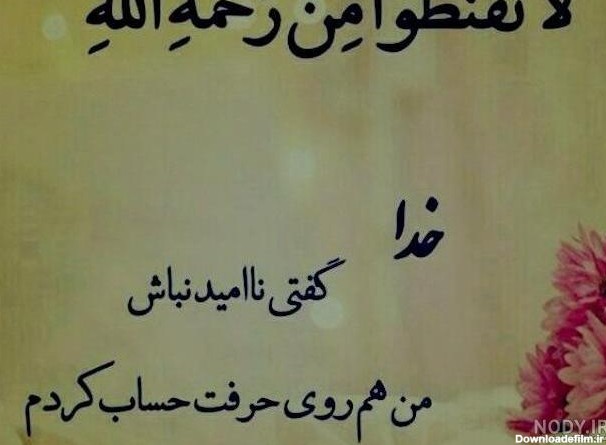 لا تَقْنَطُوا مِن رَّحْمَةِ اللهِ
خدا
گفتی ناامید نباش
من هم روی حرفت حساب کردم
NODY.IR
Downloadefilm.ir